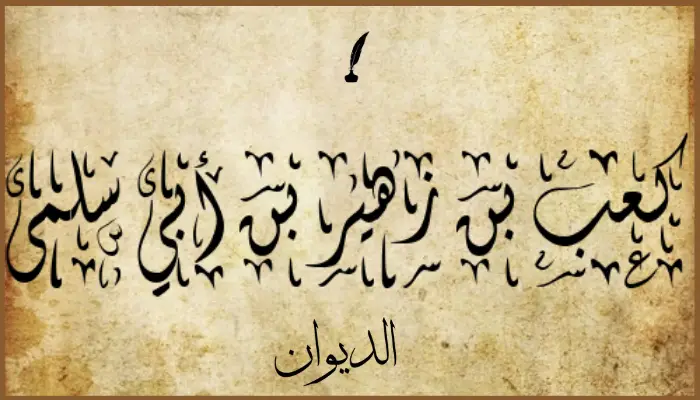 كعب بن زهير بن أبي سلمى
الديوان